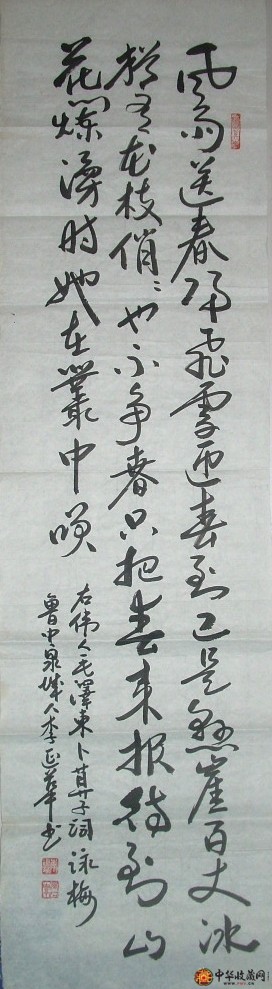 风雨送春归飞雪迎春到已是悬崖百丈冰
犹有花枝俏〻也不争春只把春来报待到山
花烂漫时她在叢中咲
右伟人毛澤東卜算子词詠梅
鲁中泉城人李延華书
中华收藏网